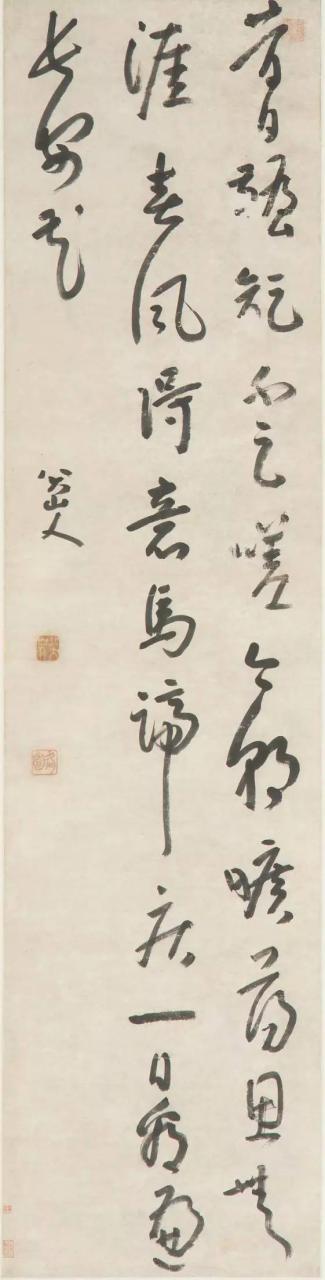 昔日齷齪不足嗟今朝曠蕩恩無
涯春風得意馬蹄疾一日看遍
長安花
八大山人